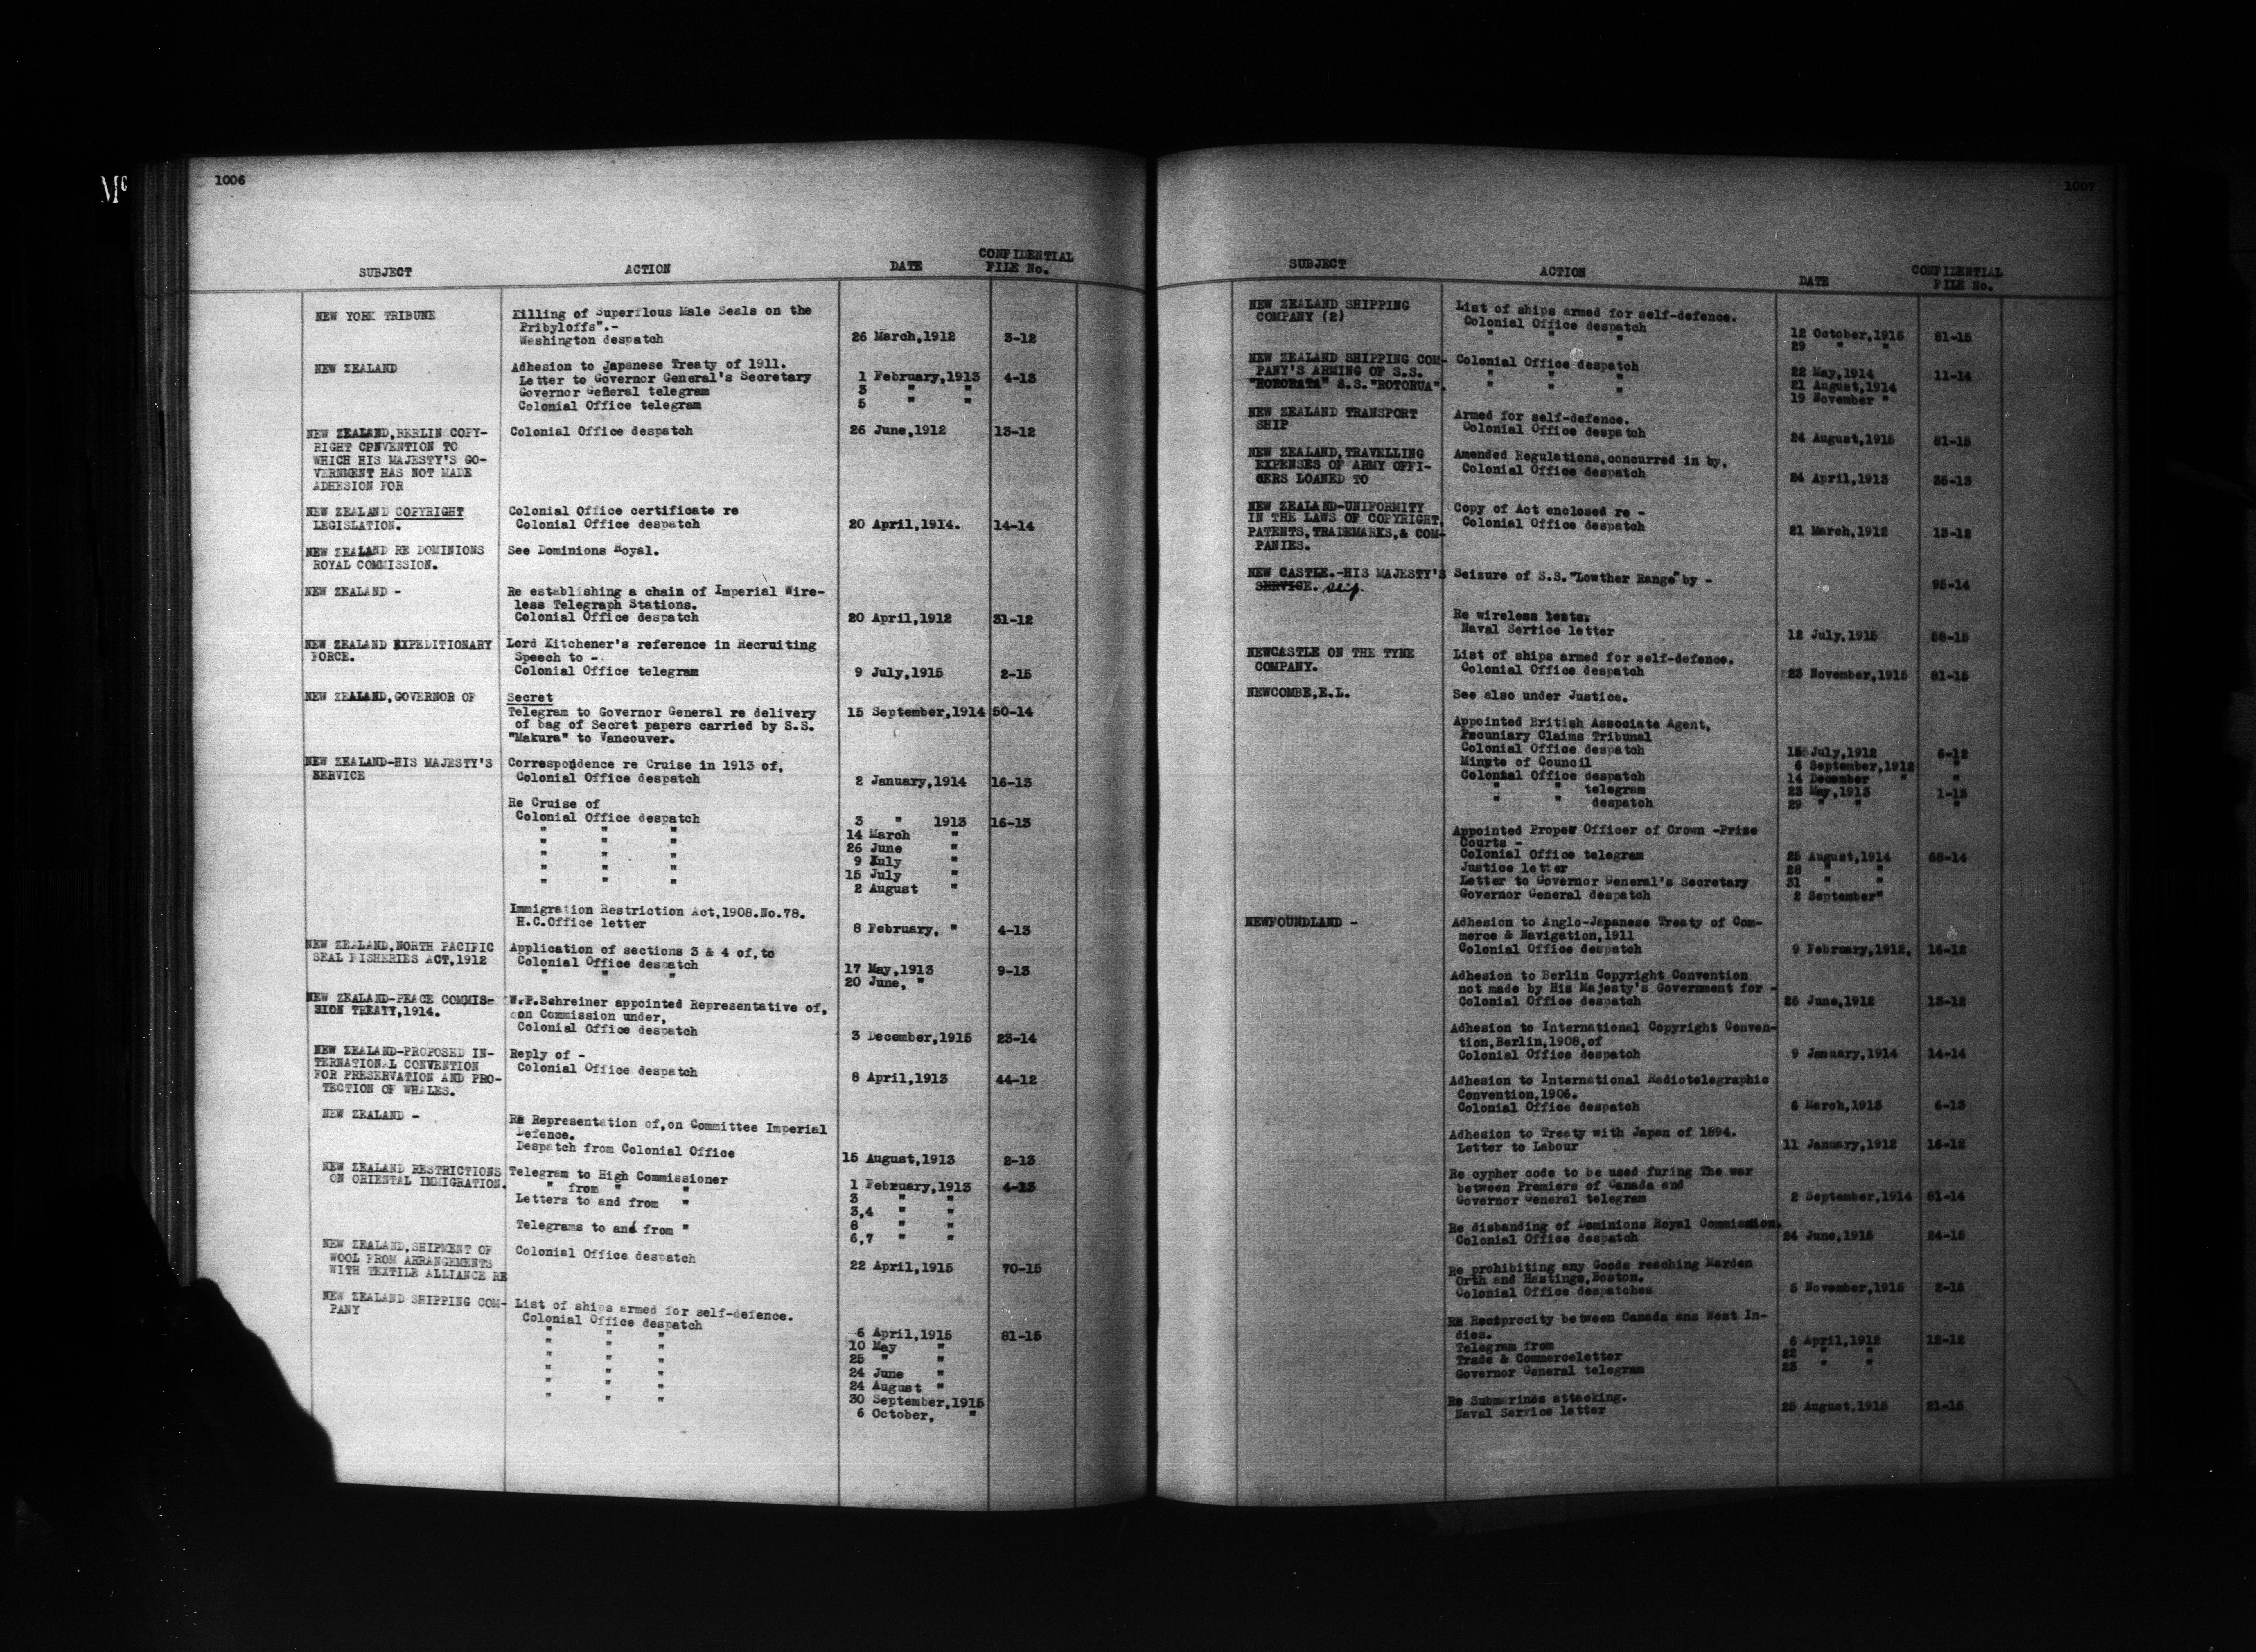 Mc
1006
SUBJECT ACTION DATE CONFIDENTIAL FILE No.
NEW YORK TRIBUNE Killing of Superflous Male Seals on the
Pribyloffs".-
Washington despatch 26 March,1912 3-12
NEW ZEALAND Adhesion to Japanese Treaty of 1911.
Letter to Governor General's Secretary 1 February,1913 4-13
Governor General telegram 3 " "
Colonial Office telegram 5 " "
NEW ZEALAND,BERLIN COPY- Colonial Office despatch 26 June,1912 13-12
RIGHT CPNVENTION TO
WHICH HIS MAJESTY'S GO-
VERNMENT HAS NOT MADE
ADHESION FOR
NEW ZEALAND COPYRIGHT Colonial Office certificate re
LEGISLATION. Colonial Office despatch 20 April,1914. 14-14
NEW ZEALAND RE DOMINIONS See Dominions Royal.
ROYAL COMMISSION.
NEW ZEALAND - Re establishing a chain of Imperial Wire-
less Telegraph Stations.
Colonial Office despatch 20 April,1912 31-12
NEW ZEALAND EXPEDITIONARY Lord Kitchener's reference in Recruiting
FORCE. Speech to -
Colonial Office telegram 9 July,1915 2-15
NEW ZEALAND,GOVERNOR OF Secret
Telegram to Governor General re delivery 15 September,1914 50-14
of bag of Secret papers carried by S.S.
"Makura" to Vancouver.
NEW ZEALAND-HIS MAJESTY'S Correspondence re Cruise in 1913 of,
SERVICE Colonial Office despatch 2 January,1914 16-13
Re Cruise of
Colonial Office despatch 3 " 1913 16-13
" " " 14 March "
" " " 26 June "
" " " 9 July "
" " " 15 July "
" " " 2 August "
Immigration Restriction Act,1908.No.78.
H.C.Office letter 8 February, " 4-13
NEW ZEALAND,NORTH PACIFIC Application of sections 3 & 4 of,to
SEAL FISHERIES ACT,1912 Colonial Office despatch 17 May,1913 9-13
" " " 20 June, "
NEW ZEALAND-PEACE COMMIS- W.P.Schreiner appointed Representative of,
SION TREATY,1914. on Commission under,
Colonial Office despatch 3 December,1915 23-14
NEW ZEALAND-PROPOSED IN- Reply of -
TERNATIONAL CONVENTION Colonial Office despatch 8 April,1913 44-12
FOR PRESERVATION AND PRO-
TECTION OF WHALES.
NEW ZEALAND - Re Representation of,on Committee Imperial
Defence.
Despatch from Colonial Office 15 August,1913 2-13
NEW ZEALAND RESTRICTIONS Telegram to High Commissioner 1 February,1913 4-13
ON ORIENTAL IMMIGRATION. " from " " 3 " "
Letters to and from " 3,4 " "
8 " "
Telegrams to and from " 6,7 " "
NEW ZEALAND,SHIPMENT OF Colonial Office despatch 22 April,1915 70-15
WOOL FROM ARRANGEMENTS
WITH TEXTILE ALLIANCE RE
NEW ZEALAND SHIPPING COM- List of ships armed for self-defence.
PANY Colonial Office despatch 6 April,1915 81-15
" " " 10 May "
" " " 25 " "
" " " 24 June "
" " " 24 August "
" " " 30 September,1915
" " " 6 October, "
1007
SUBJECT ACTION DATE CONFIDENTIAL FILE No.
NEW ZEALAND SHIPPING List of ships armed for self-defence.
COMPANY (2) Colonial Office despatch 12 October,1915 81-15
" " " 29 " "
NEW ZEALAND SHIPPING COM- Colonial Office despatch 22 May,1914 11-14
PANY'S ARMING OF S.S. " " " 21 August,1914
"HORORATA" S.S."ROTORUA". " " " 19 November "
NEW ZEALAND TRANSPORT Armed for self-defence.
SHIP Colonial Office despatch 24 August,1915 81-15
NEW ZEALAND,TRAVELLING Amended Regulations,concurred in by,
EXPENSES OF ARMY OFFI- Colonial Office despatch 24 April,1913 35-13
CERS LOANED TO
NEW ZEALAND-UNIFORMITY Copy of Act enclosed re -
IN THE LAWS OF COPYRIGHT, Colonial Office despatch 21 March,1912 13-12
PATENTS,TRADEMARKS,& COM-
PANIES.
NEW CASTLE.-HIS MAJESTY'S Seizure of S.S."Lowther Range"by - 95-14
SERVICE. Ship.
Re wireless tests.
Naval Service letter 12 July,1915 58-15
NEWCASTLE ON THE TYNE List of ships armed for self-defence.
COMPANY. Colonial Office despatch 23 November,1915 81-15
NEWCOMBE,E.L. See also under Justice.
Appointed British Associate Agent,
Pecuniary Claims Tribunal
Colonial Office despatch July,1912 6-12
Minute of Council 6 September,1912 "
Colonial Office despatch 14 December " "
" " telegram 23 May,1913 1-13
" " despatch 29 " " "
Appointed Proper Officer of Crown -Prize
Courts -
Colonial Office telegram 25 August,1914 68-14
Justice letter 28 " "
Letter to Governor General's Secretary 31 " "
Governor General despatch 2 September"
NEWFOUNDLAND - Adhesion to Anglo-Japanese Treaty of Com-
merce & Navigation,1911
Colonial Office despatch 9 February,1912, 16-12
Adhesion to Berlin Copyright Convention
not made by His Majesty's Government for -
Colonial Office despatch 26 June,1912 13-12
Adhesion to International Copyright Conven-
tion,Berlin,1908,of
Colonial Office despatch 9 January,1914 14-14
Adhesion to International Radiotelegraphic
Convention,1906.
Colonial Office despatch 6 March,1913 6-13
Adhesion to Treaty with Japan of 1894.
Letter to Labour 11 January,1912 16-12
Re cypher code to be used furing The war
between Premiers of Canada and
Governor General telegram 2 September,1914 81-14
Re disbanding of Dominions Royal Commission.
Colonial Office despatch 24 June,1915 24-15
Re prohibiting any Goods reaching Marden
Orth and Hastings,Boston.
Colonial Office despatches 5 November,1915 2-15
Re Reciprocity between Canada ans West In-
dies.
Telegram from 6 April,1912 12-12
Trade & Commerceletter 22 " "
Governor General telegram 23 " "
Re Submarines attacking.
Naval Service letter 25 August,1915 21-15